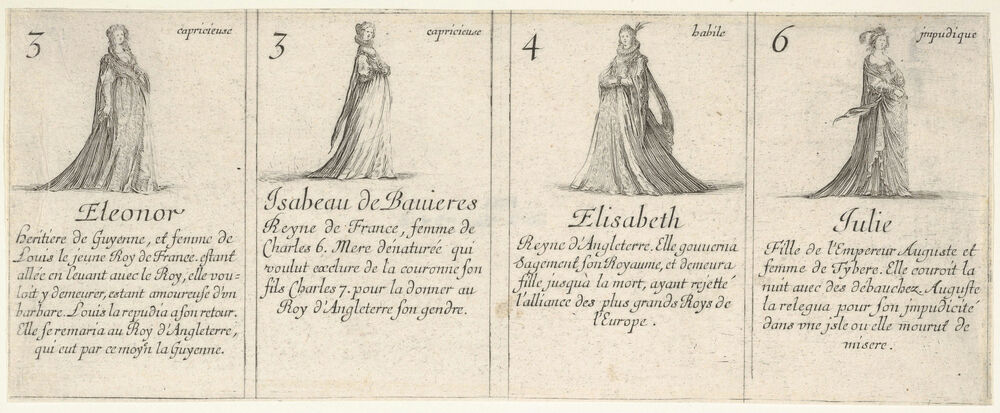 3
capricieuse
Eleonor
heritiere de Guyenne, et femme de
Louis le jeune Roy de France. estant
allée en leuant avec le Roy, elle vou-
loit y demeurer, estant amoureuse d'vn
barbare. Louis la repudia a son retour.
Elle se remaria au Roy d'Angleterre,
qui eut par ce moyn la Guyenne.
3
capricieuse
Isabeau de Bauieres
Reyne de France, femme de
Charles 6. Mere denaturée qui
voulut exclure de la couronne son
fils Charles 7. pour la donner au
Roy d'Angleterre son gendre.
4
habile
Elisabeth
Reyne d'Angleterre. Elle gouuerna
sagement son Royaume, et demeura
fille jusqu'a la mort, ayant rejetté
l'alliance des plus grands Roys de
l'Europe.
6
jmpudique
Julie
Fille de l'Empereur Auguste et
femme de Tybere. Elle couroit la
nuit avec des débauchez. Auguste
la relegua pour son impudicité
dans vne isle ou elle mourut de
misere.